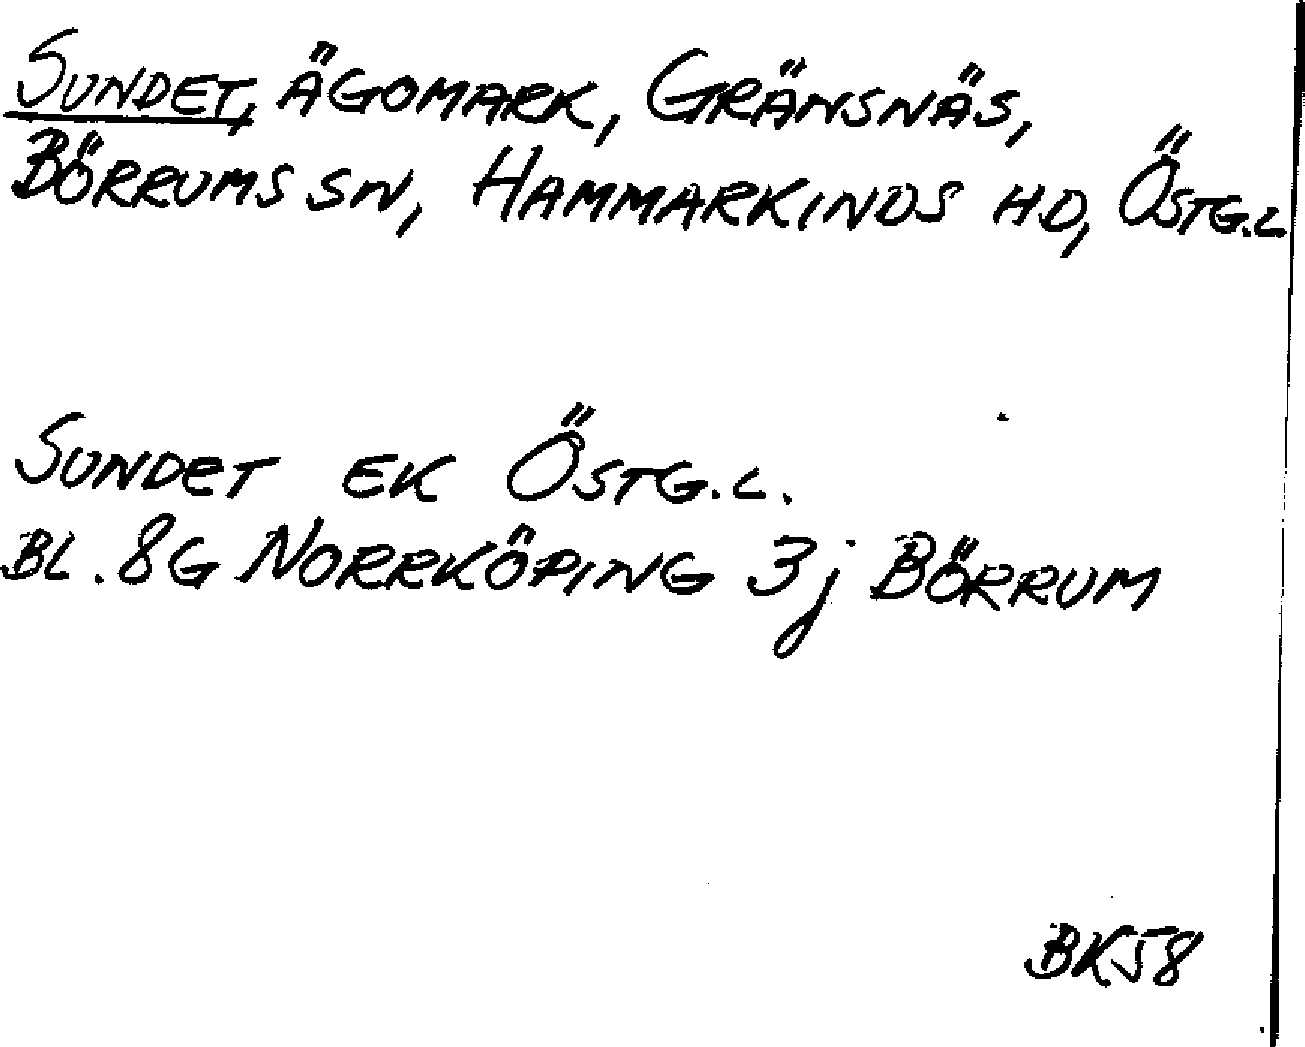 SUNDET, ÄGOMARK, GRÄNSNÄS,
BÖRRUMS SN, HAMMARKINDS HD, ÖSTG.L
SUNDET EK ÖSTG.L.
BL. 8G NORRKÖPING 3j BÖRRUM
BK58